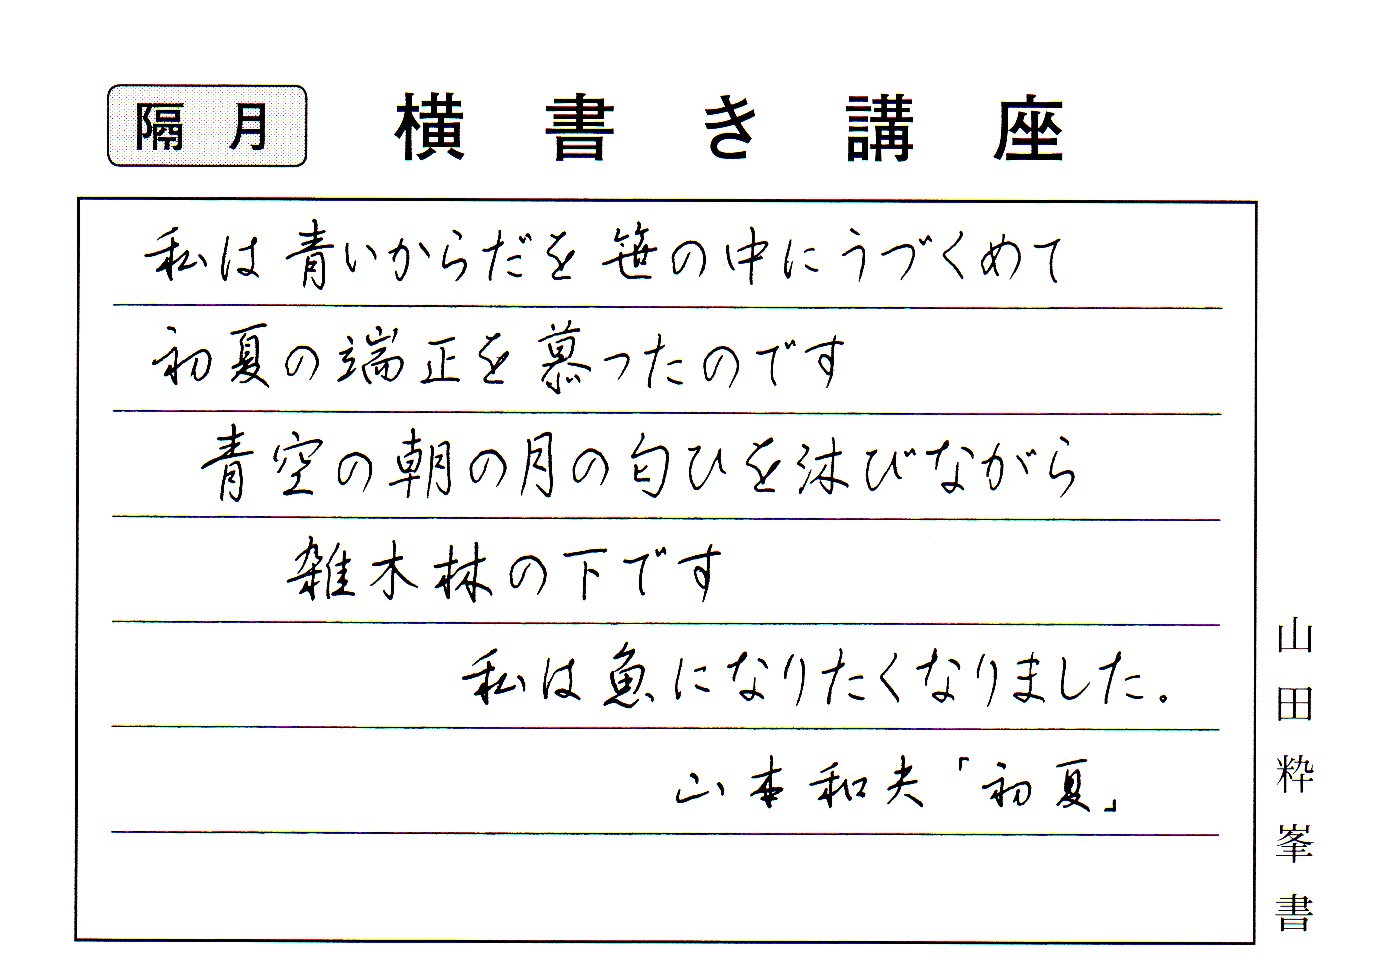 隔月 横書き講座
私は青いからだを笹の中にうづくめて
初夏の端正を慕ったのです
青空の朝の月の匂ひを沐びながら
雑木林の下です
私は魚になりたくなりました。
山本和夫「初夏」
山田粋峯書